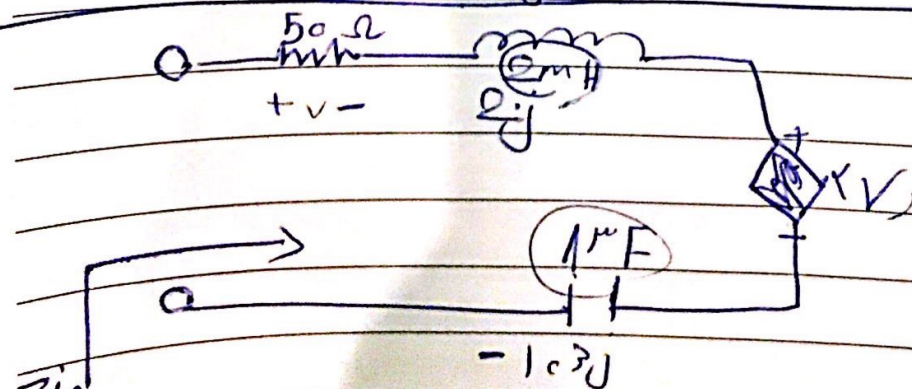 50 Ω
+ v -
2mH
2j
+
1μF
-
- 103j
Zin